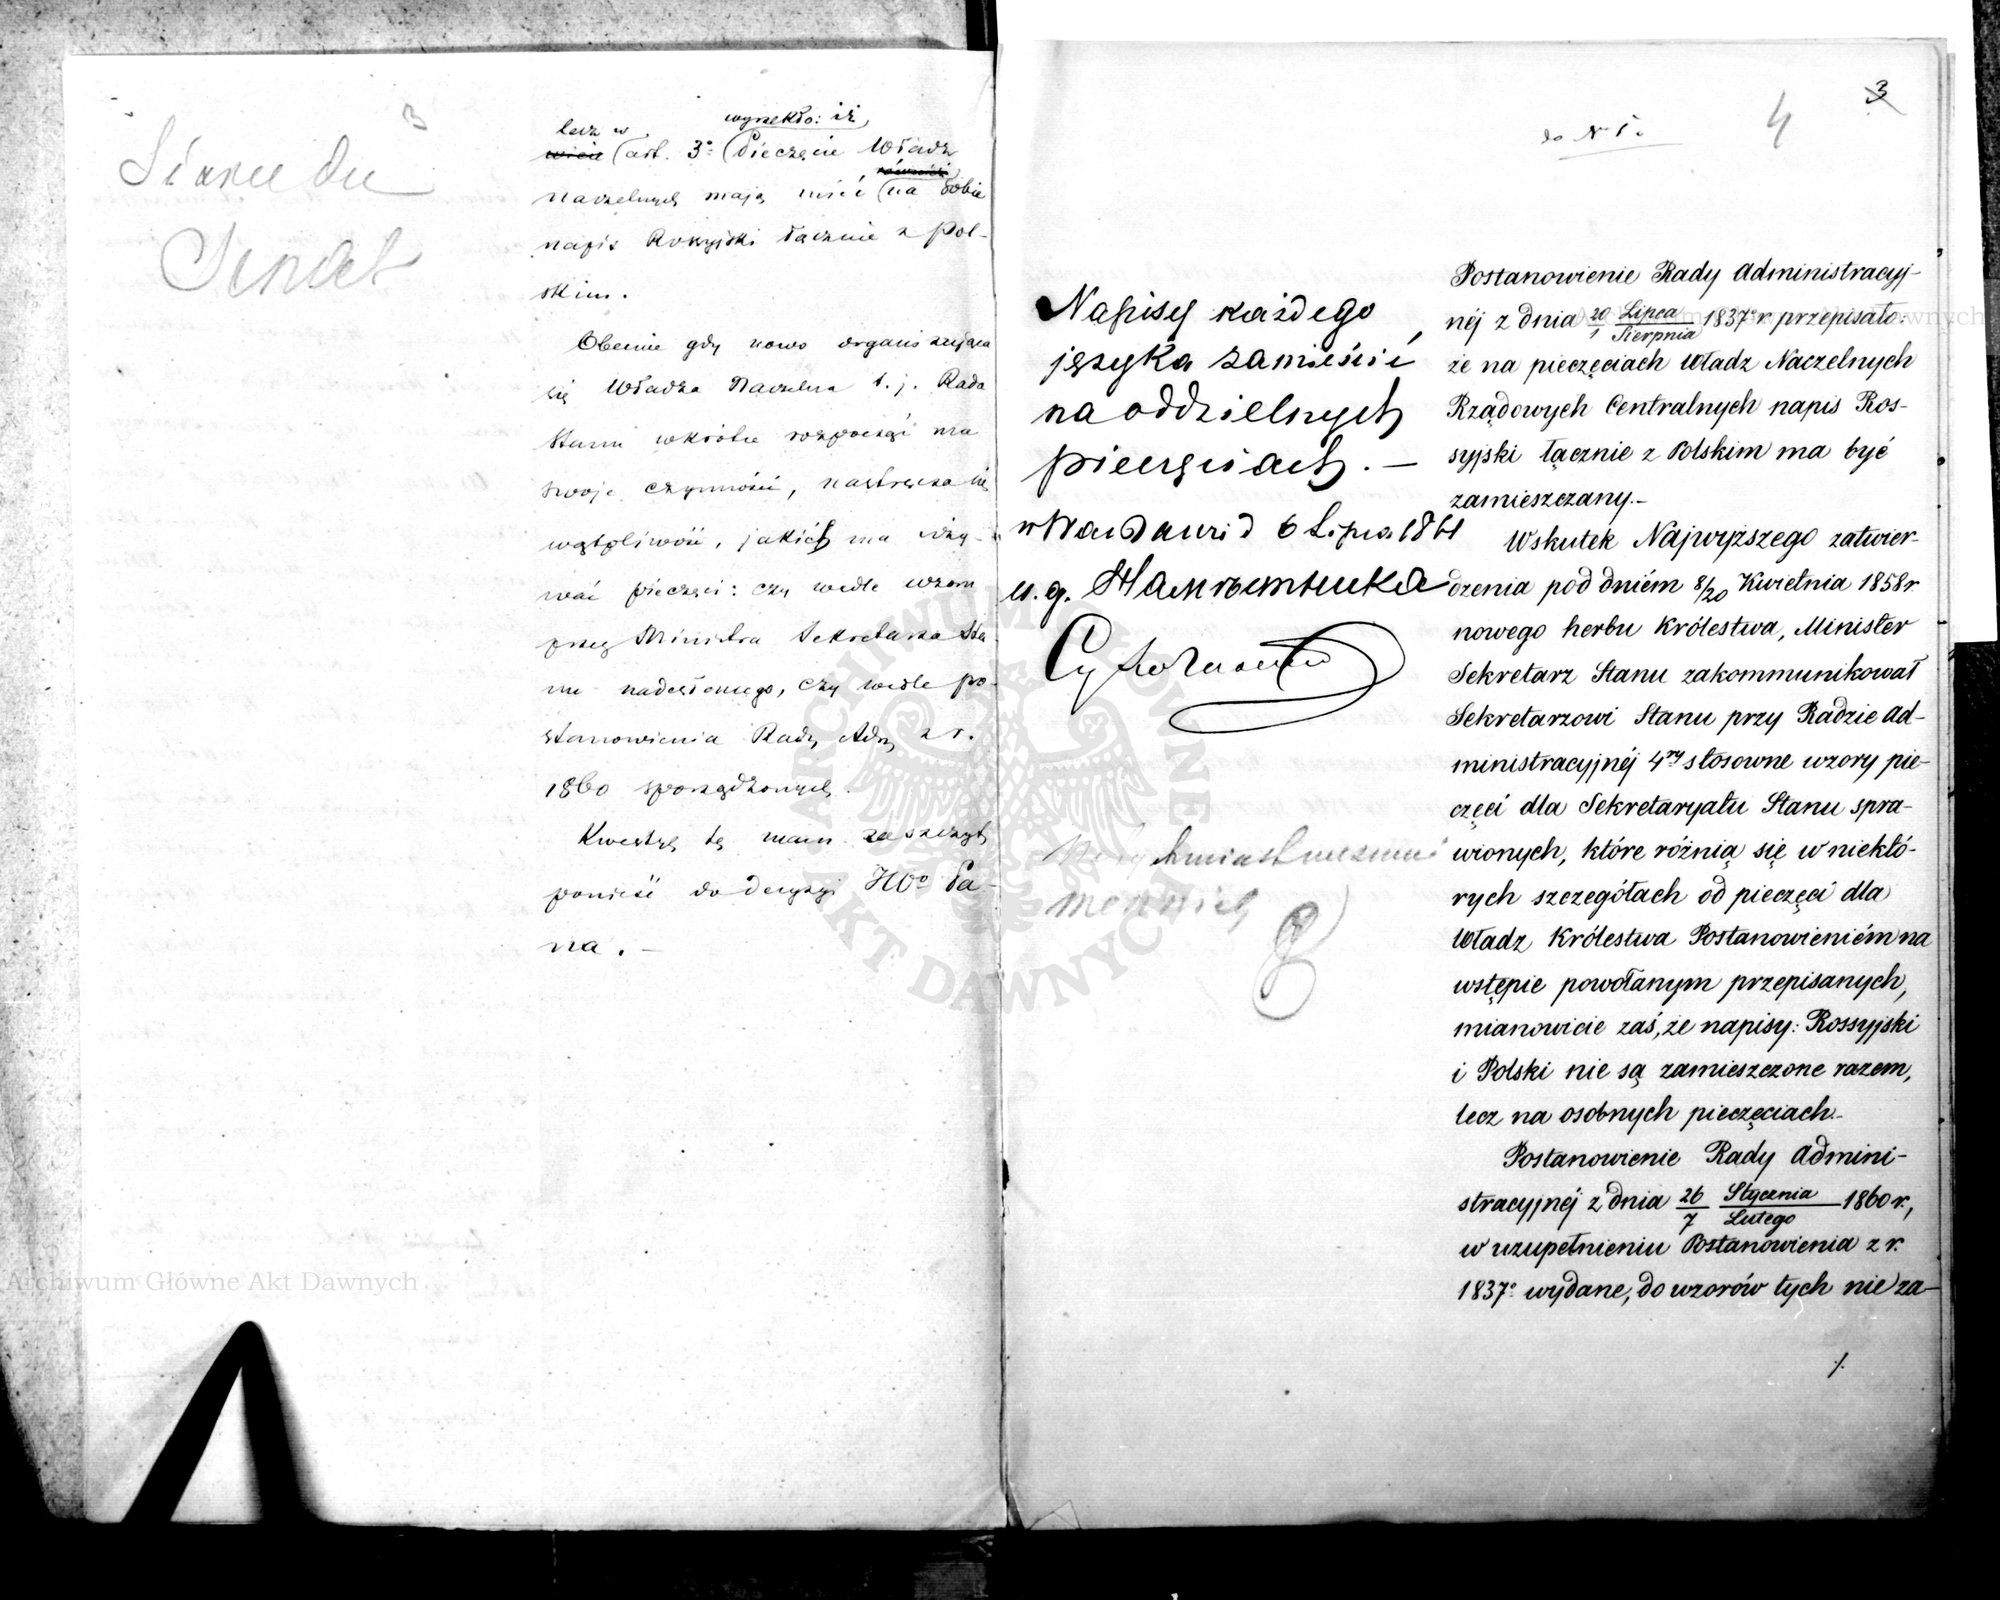 lecz w wyrzekło: iż,
art. 3º Pieczęcie Władz
naczelnych mają mieć na sobie
napis Rossyjski łącznie z Pol-
skim.
Obecnie gdy nowo organizująca
się Władza Naczelna t. j. Rada
Stanu wkrótce rozpocząć ma
swoje czynności, nastręcza się
wątpliwość, jakich ma uży-
wać pieczęci: czy wedle wzoru
przez Ministra Sekretarza Sta-
nu nadesłanego, czy wedle po-
stanowienia Rady Adm. z r.
1860 sporządzonych.
Kwestyę tę mam zaszczyt
ponieść do decyzyi JWº Pa-
na. —
3
4
do Nr 1.
Napisy każdego
języka zamieścić
na oddzielnych
pieczęciach. —
w Warszawie d 6 Lipca 1861
u. g. Намѣстника
Postanowienie Rady Administracyj-
néj z dnia 20/1 Lipca/Sierpnia 1837º r. przepisało:
że na pieczęciach Władz Naczelnych
Rządowych Centralnych napis Ros-
syjski łącznie z Polskim ma być
zamieszczany.—
Wskutek Najwyższego zatwier-
dzenia pod dniém 8/20 Kwietnia 1858 r.
nowego herbu Królestwa, Minister
Sekretarz Stanu zakommunikował
Sekretarzowi Stanu przy Radzie Ad-
ministracyjnéj 4ry stosowne wzory pie-
częci dla Sekretaryatu Stanu spra-
wionych, które różnią się w niektó-
rych szczegółach od pieczęci dla
Władz Królestwa Postanowieniém na
wstępie powołanym przepisanych,
mianowicie zaś, że napisy: Rossyjski
i Polski nie są zamieszczone razem,
lecz na osobnych pieczęciach.—
Postanowienie Rady Admini-
stracyjnéj z dnia 26/7 Stycznia/Lutego 1860 r.,
w uzupełnieniu Postanowienia z r.
1837º wydane, do wzorów tych nie za-
./.
Archiwum Główne Akt Dawnych
ARCHIWUM GŁÓWNE AKT DAWNYCH